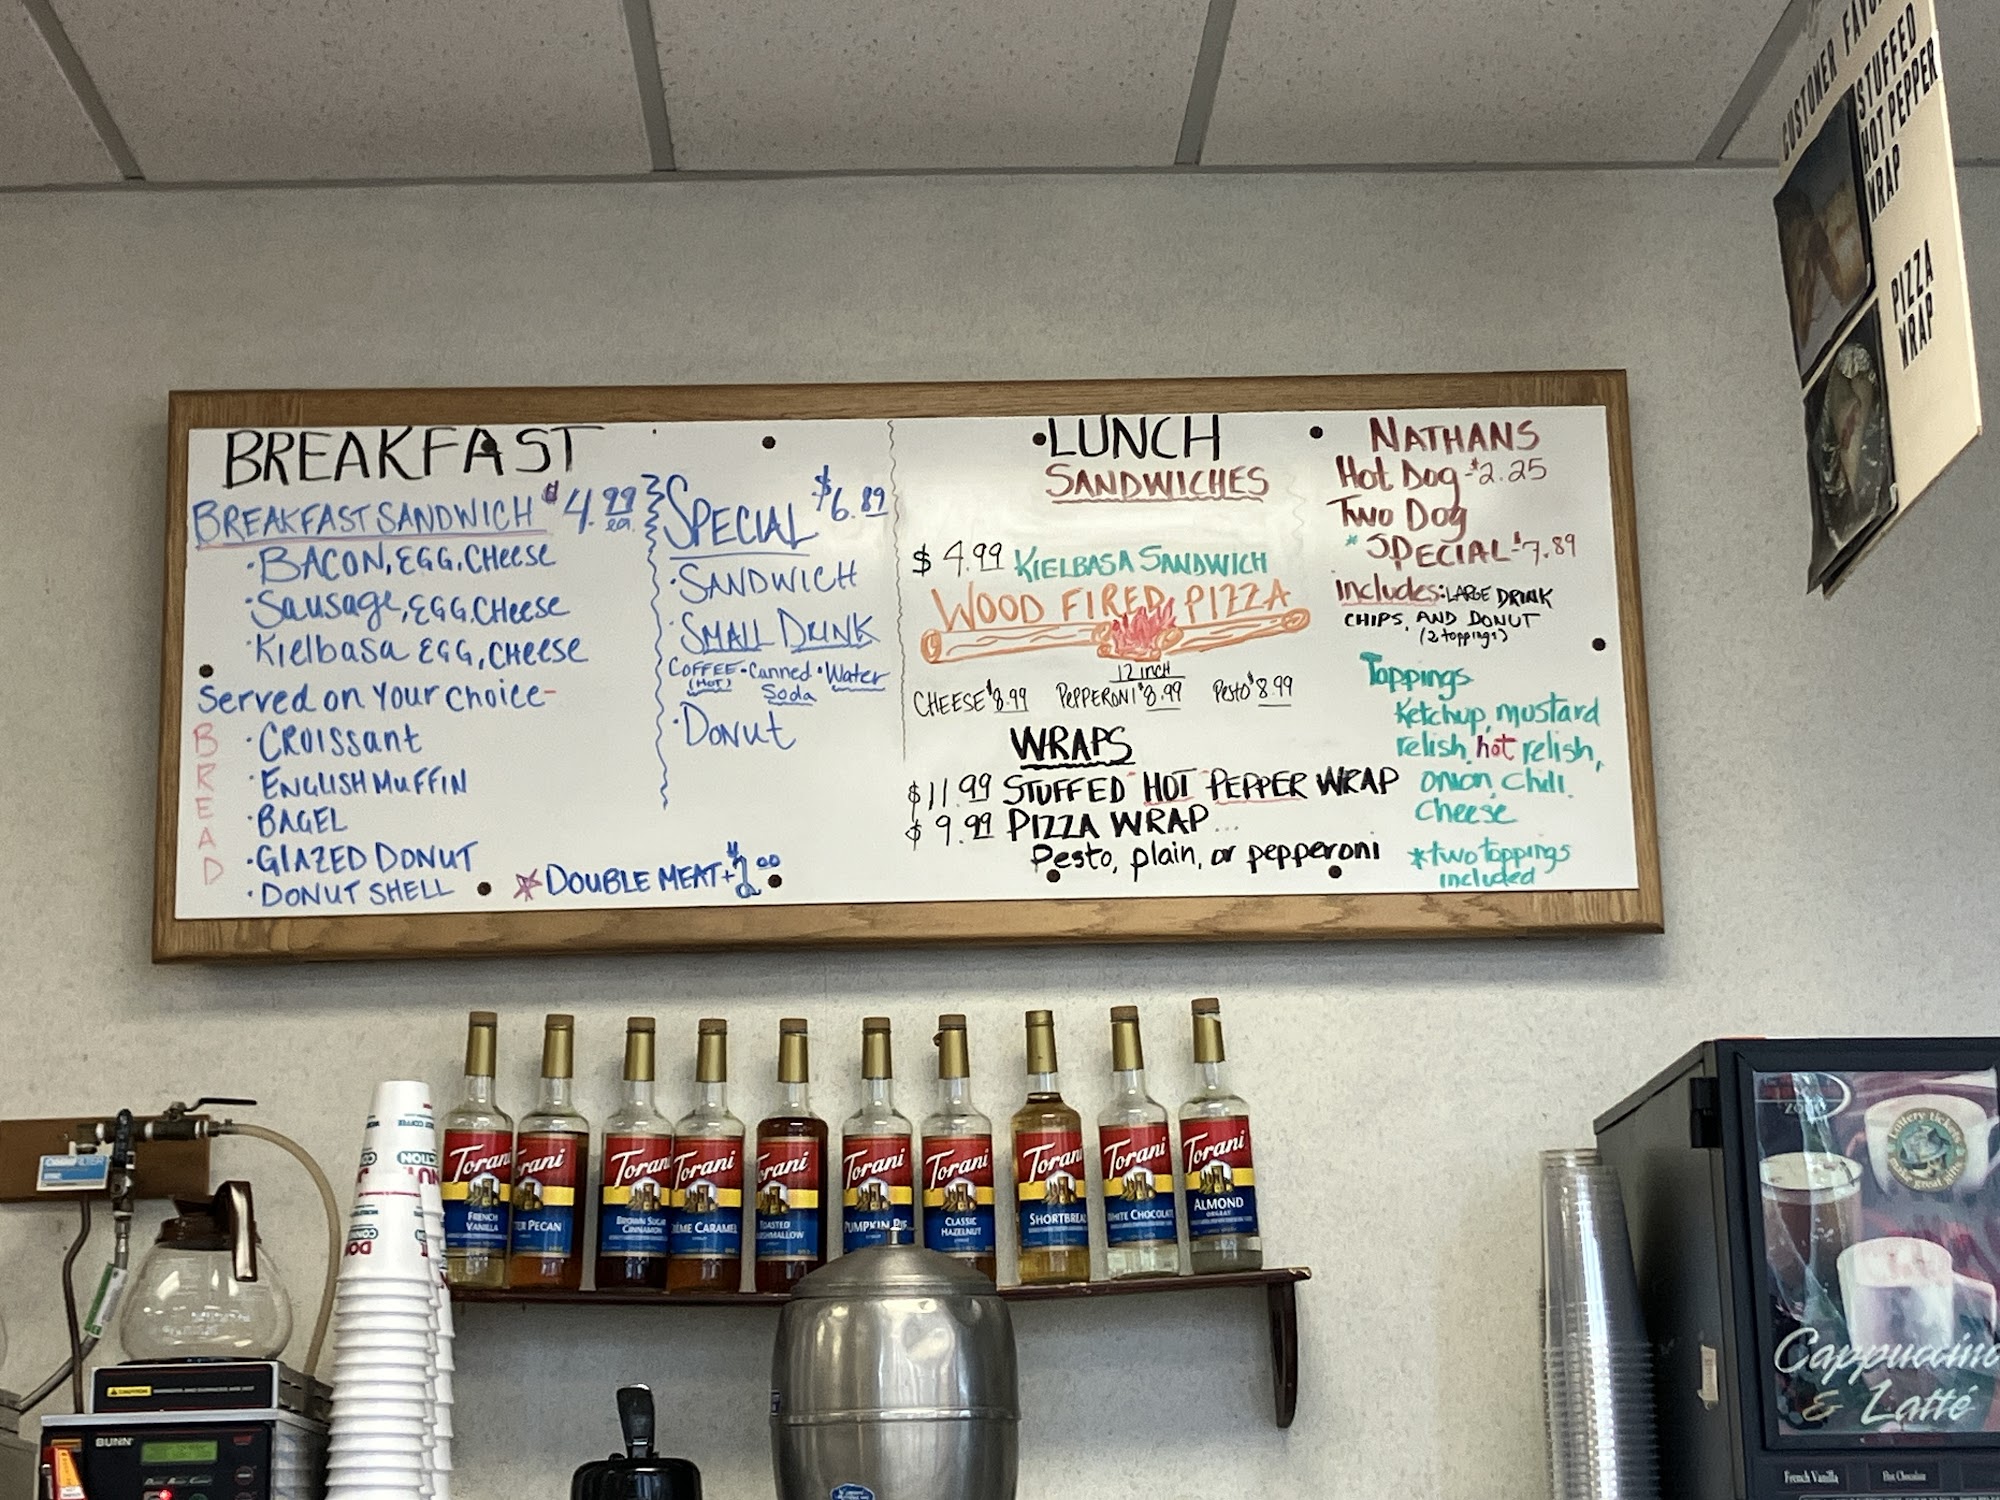 BREAKFAST
BREAKFAST SANDWICH $4.99 ea.
·BACON, EGG, CHeese
·Sausage, EGG, CHeese
·Kielbasa EGG, CHeese
Served on Your choice-
BREAD
·CROISSANT
·ENGLISH MUFFIN
·BAGEL
·GLAZED DONUT
·DONUT SHELL
SPECIAL $6.89
·SANDWICH
·SMALL DRINK
COFFEE (HOT) ·Canned Soda ·Water
·DONUT
*DOUBLE MEAT +$2.00
LUNCH
SANDWICHES
$4.99 KIELBASA SANDWICH
WOOD FIRED PIZZA
12 INCH
CHEESE $8.99 PEPPERONI $8.99 Pesto $8.99
WRAPS
$11.99 STUFFED HOT PEPPER WRAP
$9.99 PIZZA WRAP...
Pesto, plain, or pepperoni
NATHANS
Hot Dog -$2.25
Two Dog
*SPECIAL-$7.89
Includes: LARGE DRINK
CHIPS, AND DONUT
(2 toppings)
Toppings
Ketchup, mustard
relish, hot relish,
onion, chili,
cheese
*two toppings
included
CUSTOMER
STUFFED
HOT PEPPER
WRAP
PIZZA
WRAP
Torani
FRENCH
VANILLA
Torani
PECAN
Torani
BROWN SUGAR
CINNAMON
Torani
CRÈME CARAMEL
Torani
TOASTED
MARSHMALLOW
Torani
PUMPKIN PIE
Torani
CLASSIC
HAZELNUT
Torani
SHORTBREAD
Torani
WHITE CHOCOLATE
Torani
ALMOND
ORGEAT
CAUTION
BUNN
Lottery tickets
make great gifts
Cappuccino
& Latté
French Vanilla
Hot Chocolate